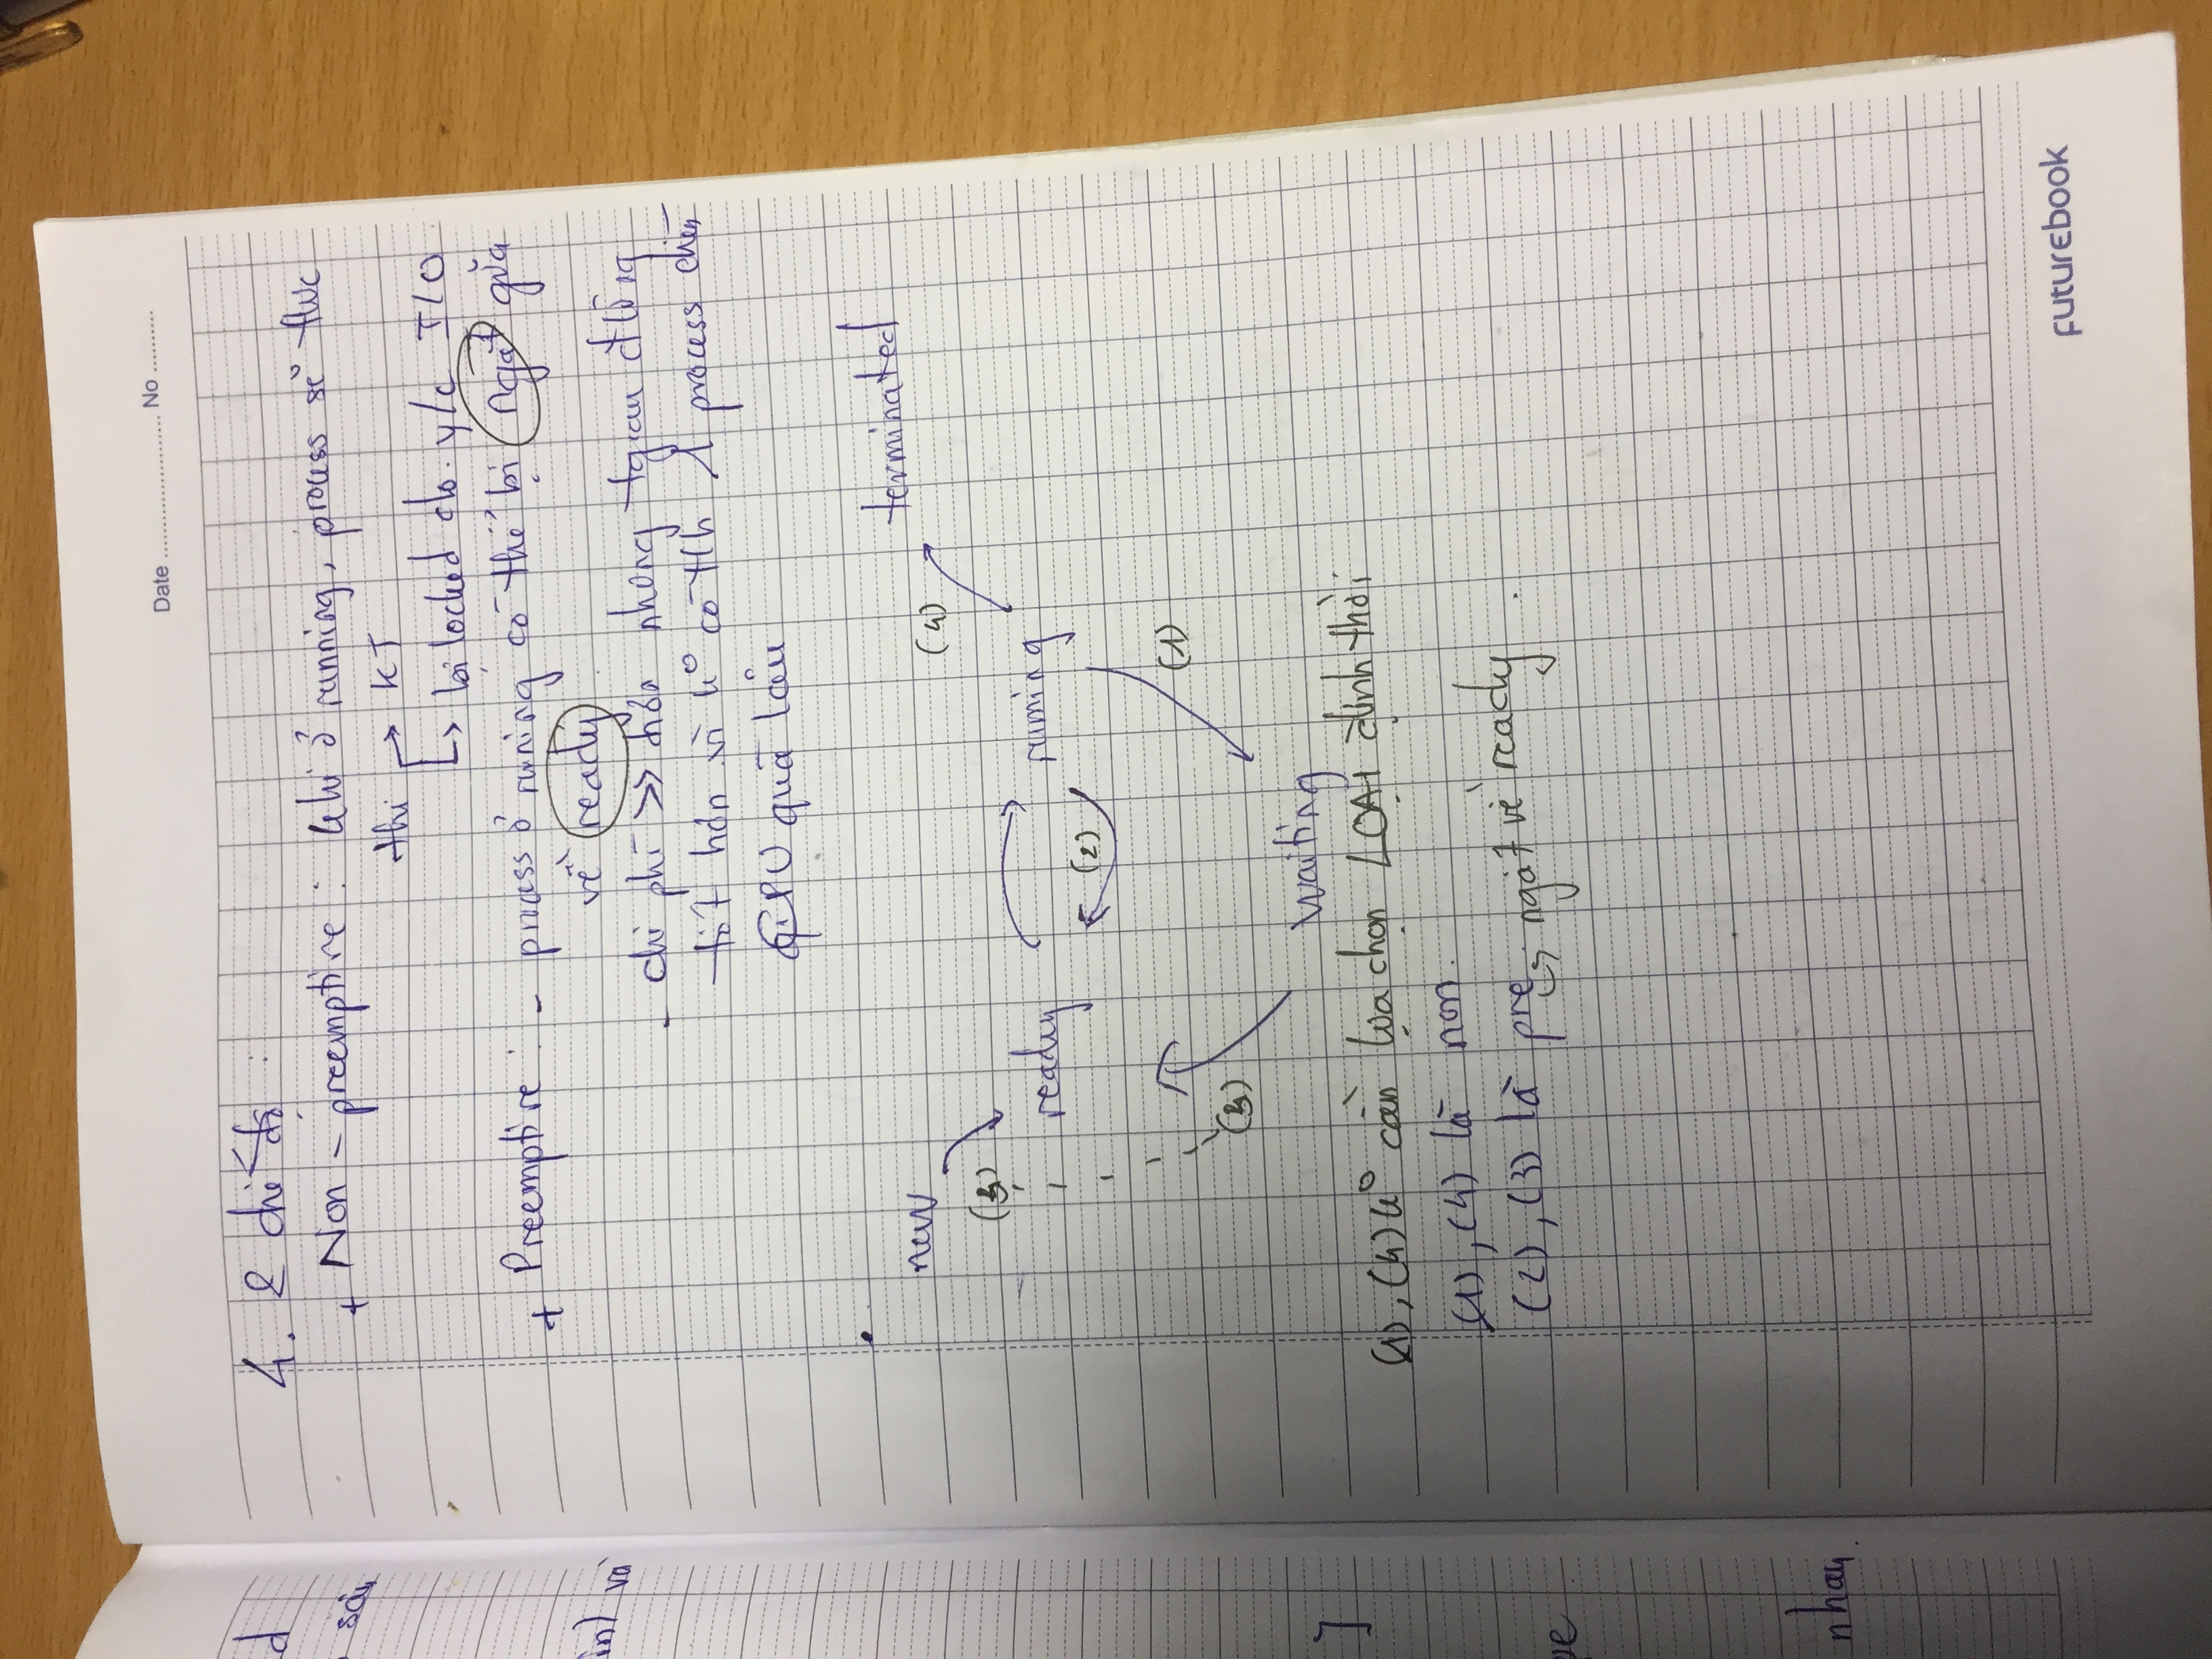 Date ........................ No ..........
4. 2 chế độ :
+ Non-preemptive : khi ở running, process sẽ thực
thi → KT
↳ bị locked do y/c I/O
+ Preemptive : - process ở runing có thể bị ngắt giữa
về ready
- chi phí >> hơn nhưng tgian đ
tốt hơn vì k° có t/h 1 process chiếm
CPU quá lâu
new
terminated
(4)
(3)
ready
runing
(2)
(1)
(3)
waiting
(1), (4) k° cần lựa chọn LOẠI định thời
(1), (4) là non.
(2), (3) là pre ↳ ngắt về ready
d
sau
int) và
]
pe
nhau.
FUTUREBOOK